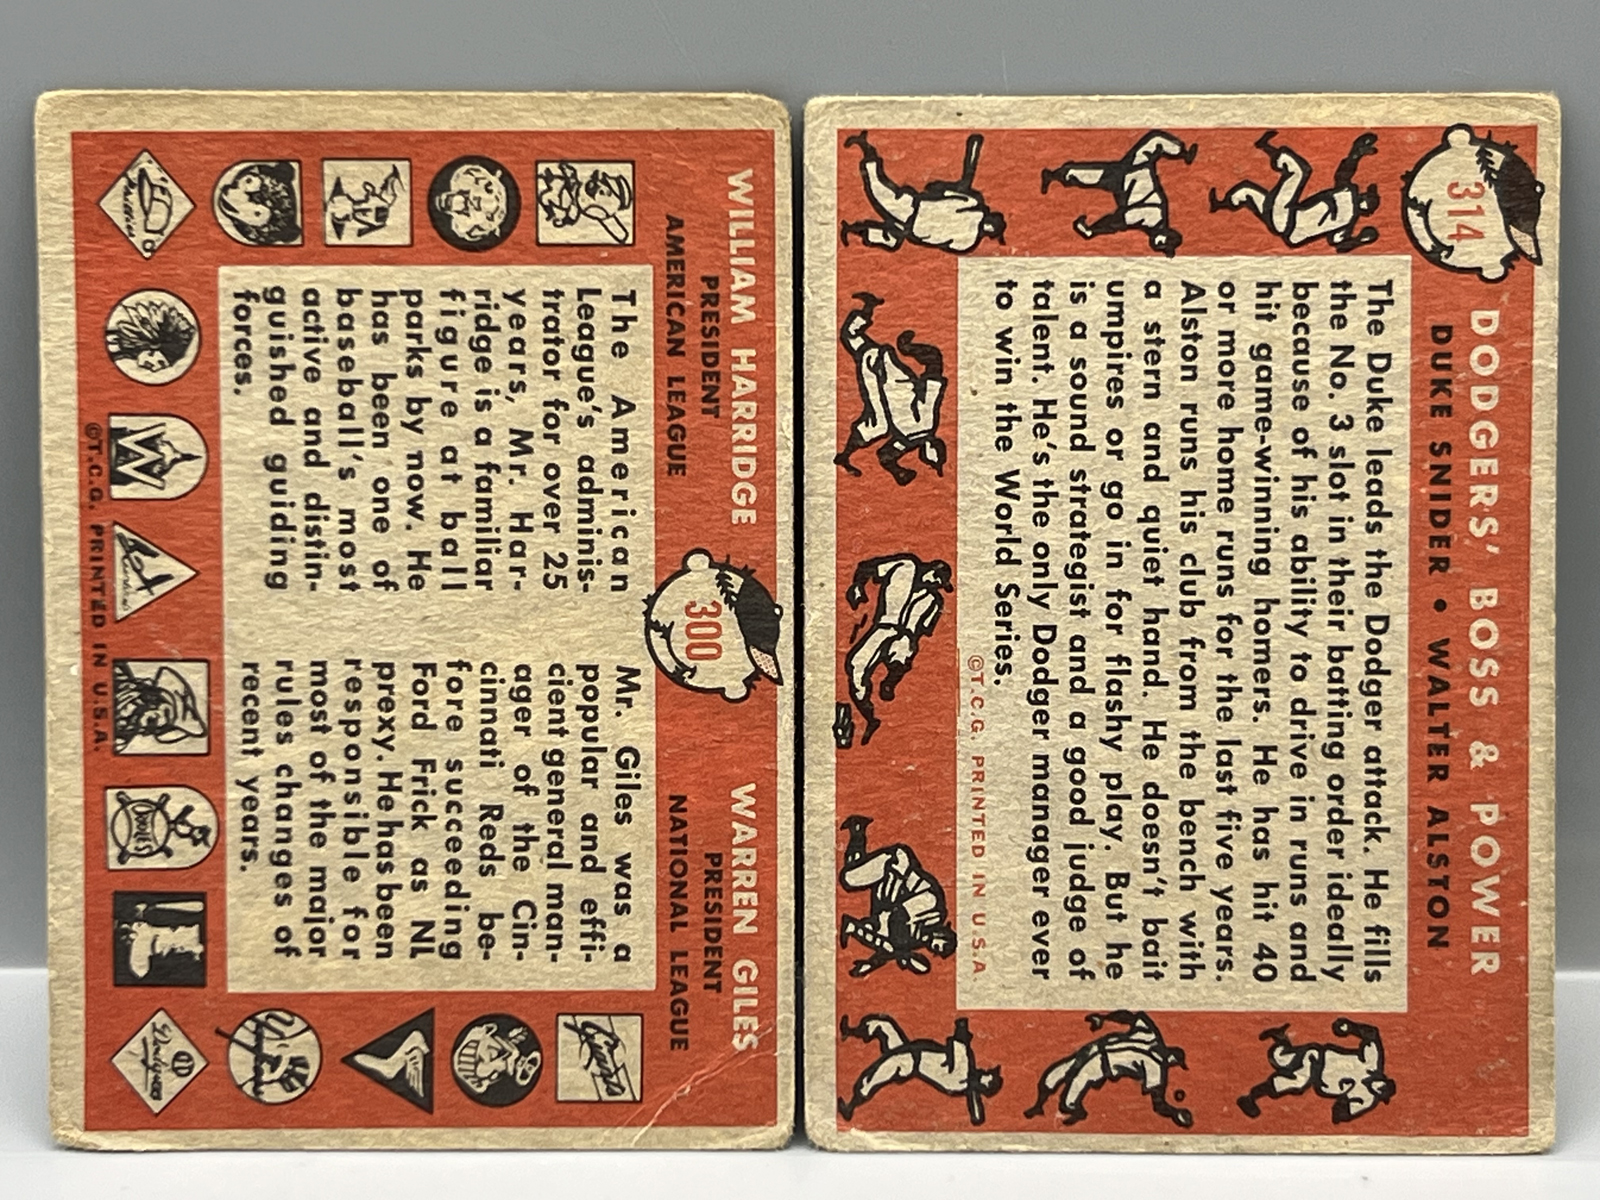 WILLIAM HARRIDGE
PRESIDENT
AMERICAN LEAGUE
300
WARREN GILES
PRESIDENT
NATIONAL LEAGUE
The American
League's adminis-
trator for over 25
years, Mr. Har-
ridge is a familiar
figure at ball
parks by now. He
has been one of
baseball's most
active and distin-
guished guiding
forces.
Mr. Giles was a
popular and effi-
cient general man-
ager of the Cin-
cinnati Reds be-
fore succeeding
Ford Frick as NL
prexy. He has been
responsible for
most of the major
rules changes of
recent years.
Phillies
W
Giants
Dodgers
©T.C.G. PRINTED IN U.S.A.
314
DODGERS' BOSS & POWER
DUKE SNIDER • WALTER ALSTON
The Duke leads the Dodger attack. He fills
the No. 3 slot in their batting order ideally
because of his ability to drive in runs and
hit game-winning homers. He has hit 40
or more home runs for the last five years.
Alston runs his club from the bench with
a stern and quiet hand. He doesn't bait
umpires or go in for flashy play. But he
is a sound strategist and a good judge of
talent. He's the only Dodger manager ever
to win the World Series.
©T.C.G. PRINTED IN U.S.A.